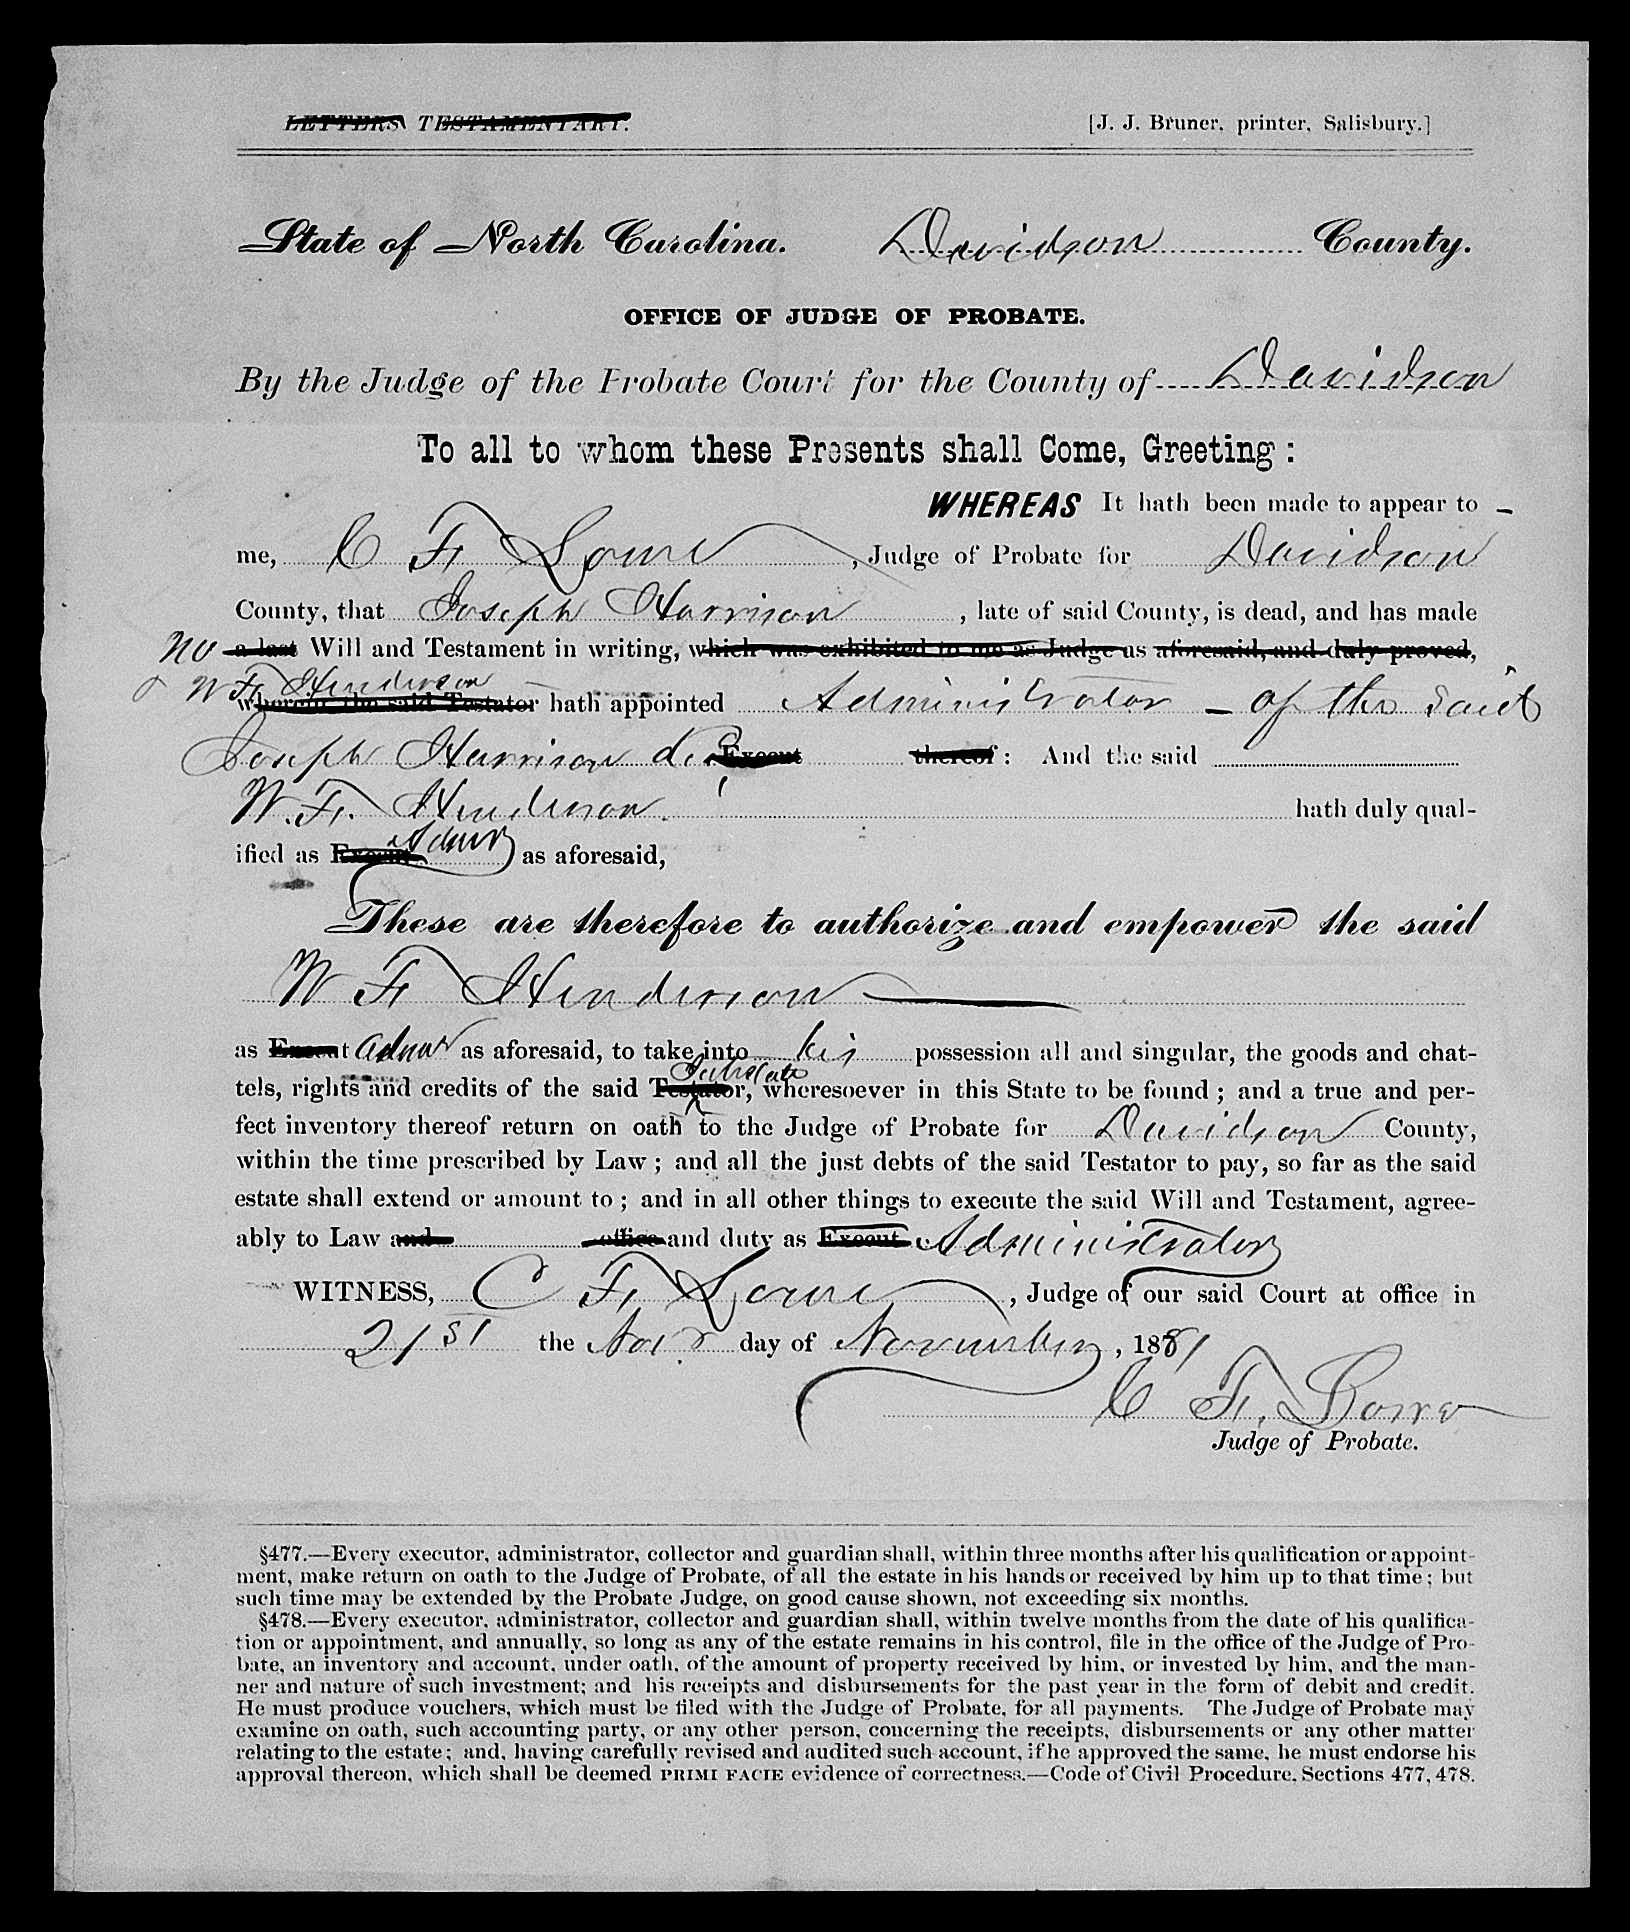 LETTERS TESTAMENTARY. [J. J. Bruner, printer, Salisbury.]
State of North Carolina. Davidson County.
OFFICE OF JUDGE OF PROBATE.
By the Judge of the Probate Court for the County of Davidson
To all to whom these Presents shall Come, Greeting:
WHEREAS It hath been made to appear to
me, C F Lowe, Judge of Probate for Davidson
County, that Joseph Harrison, late of said County, is dead, and has made
no a last Will and Testament in writing, which was exhibited to me as Judge as aforesaid, and duly proved,
W F Henderson
wherein, the said Testator hath appointed Administrator - of the said
Joseph Harrison Execut thereof: And the said
W. F. Henderson hath duly qual-
ified as Execut Admr as aforesaid,
These are therefore to authorize and empower the said
W F Henderson
as Execut admr as aforesaid, to take into his possession all and singular, the goods and chat-
Intestate
tels, rights and credits of the said Testator, wheresoever in this State to be found; and a true and per-
fect inventory thereof return on oath to the Judge of Probate for Davidson County,
within the time prescribed by Law; and all the just debts of the said Testator to pay, so far as the said
estate shall extend or amount to; and in all other things to execute the said Will and Testament, agree-
ably to Law and office and duty as Execut Administrator
WITNESS, C F Lowe, Judge of our said Court at office in
21st the day of November, 1881
C F. Lowe
Judge of Probate.
§477.—Every executor, administrator, collector and guardian shall, within three months after his qualification or appoint-
ment, make return on oath to the Judge of Probate, of all the estate in his hands or received by him up to that time; but
such time may be extended by the Probate Judge, on good cause shown, not exceeding six months.
§478.—Every executor, administrator, collector and guardian shall, within twelve months from the date of his qualifica-
tion or appointment, and annually, so long as any of the estate remains in his control, file in the office of the Judge of Pro-
bate, an inventory and account, under oath, of the amount of property received by him, or invested by him, and the man-
ner and nature of such investment; and his receipts and disbursements for the past year in the form of debit and credit.
He must produce vouchers, which must be filed with the Judge of Probate, for all payments. The Judge of Probate may
examine on oath, such accounting party, or any other person, concerning the receipts, disbursements or any other matter
relating to the estate; and, having carefully revised and audited such account, if he approved the same, he must endorse his
approval thereon, which shall be deemed PRIMI FACIE evidence of correctness.—Code of Civil Procedure, Sections 477, 478.